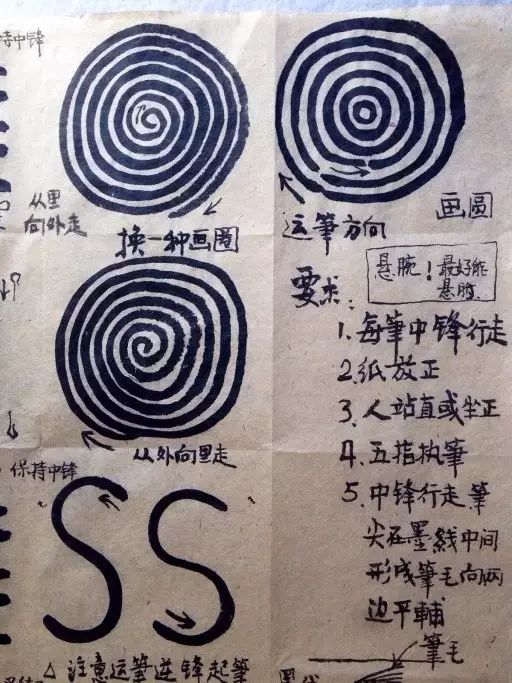 持中锋
从里
向外走
换一种画圈
运筆方向
画圆
要求：
悬腕！最好能
悬肘。
1. 每筆中锋行走
2. 纸放正
3. 人站直或坐正
4. 五指执筆
5. 中锋行走筆
尖在墨线中间
形成筆毛向两
边平輔
筆毛
从外向里走
保持中锋
SS
△ 注意运筆逆锋起筆